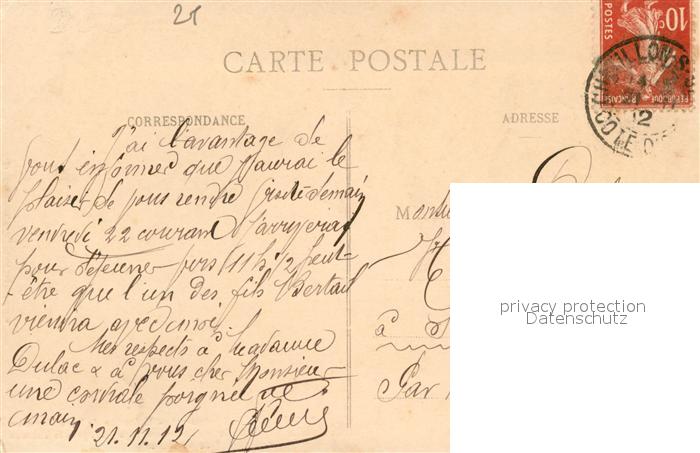 25
CARTE POSTALE
10c
POSTES
CHATILLON-S-S
12
COTE D'OR
CORRESPONDANCE
ADRESSE
J'ai l'avantage de
vous informer que j'aurai le
plaisir de vous rendre visite demain
vendredi 22 courant. J'arriverai
pour déjeuner vers 11h 1/2 peut-
-être que l'un des fils Bertail
viendra avec moi.
Mes respects à Madame
Dulac & à vous cher Monsieur
une cordiale poignée de
main.
21.11.12
à
Par
privacy protection
Datenschutz